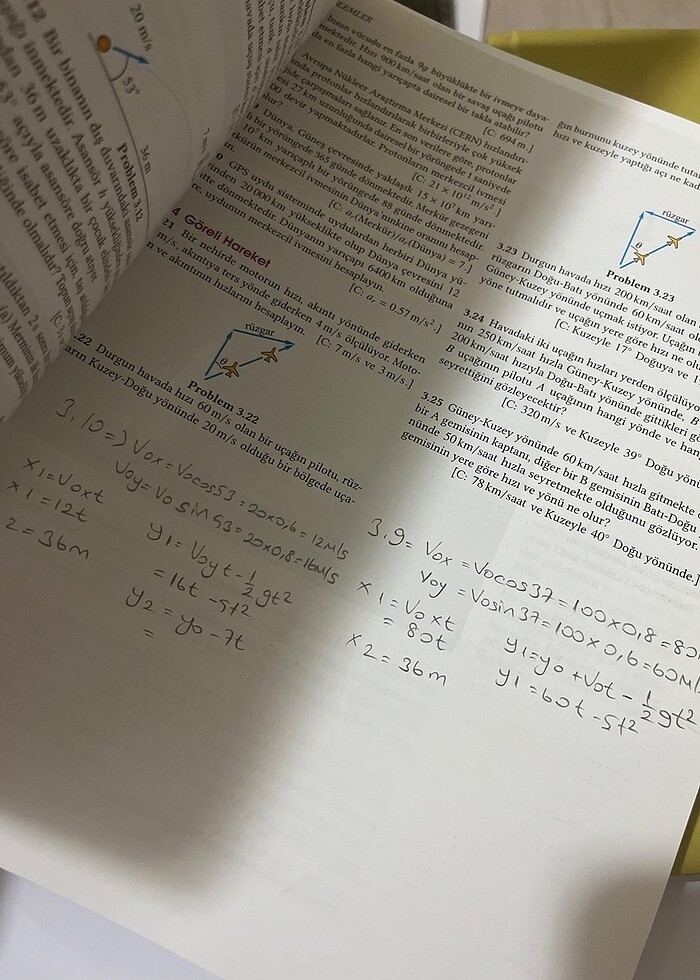 20 m/s
53°
36 m
Problem 3.12
12 Bir binanın dış duvarındaki asansör
36 m uzaklıkta bir çocuk
53° açıyla asansöre doğru atıyor.
isabet etmesi için
olmalıdır?
2 s sonra
İnsan vücudu en fazla 9g büyüklükte bir ivmeye daya-
mektedir. Hızı 900 km/saat olan bir savaş uçağı pilotu
da en fazla hangi yarıçapta dairesel bir takla atabilir?
[C: 694 m.]
Avrupa Nükleer Araştırma Merkezi (CERN) hızlandırı-
ında protonlar hızlandırılarak birbirleriyle çok yüksek
çarpışmaları sağlanır. En son verilere göre, protonlar
27 km uzunluğunda dairesel bir yörüngede 1 saniyede
devir yapmaktadırlar. Protonların merkezcil ivmesi
[C: 21 × 10¹² m/s².]
Dünya, Güneş çevresinde yaklaşık 15 × 10⁷ km yarı-
bir yörüngede 365 günde dönmektedir. Merkür gezegeni
10⁷ km yarıçaplı bir yörüngede 88 günde dönmektedir.
Merkürün merkezcil ivmesinin Dünya'nınkine oranını hesap-
[C: aᵣ(Merkür)/aᵣ(Dünya) = 7.]
GPS uydu sisteminde uydulardan herbiri Dünya yü-
zünden 20 000 km yükseklikte olup Dünya çevresini 12
dönmektedir. Dünyanın yarıçapı 6400 km olduğuna
re, uydunun merkezcil ivmesini hesaplayın.
[C: aᵣ = 0.57 m/s².]
4 Göreli Hareket
21 Bir nehirde motorun hızı, akıntı yönünde giderken
m/s, akıntıya ters yönde giderken 4 m/s ölçülüyor. Moto-
n ve akıntının hızlarını hesaplayın. [C: 7 m/s ve 3 m/s.]
rüzgar
θ
Problem 3.22
.22 Durgun havada hızı 60 m/s olan bir uçağın pilotu, rüz-
arın Kuzey-Doğu yönünde 20 m/s olduğu bir bölgede uça-
ğın burnunu kuzey yönünde tuta
hızı ve kuzeyle yaptığı açı ne
rüzgar
θ
Problem 3.23
3.23 Durgun havada hızı 200 km/saat olan
rüzgarın Doğu-Batı yönünde 60 km/saat
Güney-Kuzey yönünde uçmak istiyor. Uçağın
yöne tutmalıdır ve uçağın yere göre hızı ne
[C: Kuzeyle 17° Doğuya ve 1
3.24 Havadaki iki uçağın hızları yerden ölçülüyor
nın 250 km/saat hızla Güney-Kuzey yönünde, B
200 km/saat hızıyla Doğu-Batı yönünde gittikleri
B uçağının pilotu A uçağının hangi yönde ve
seyrettiğini gözleyecektir?
[C: 320 m/s ve Kuzeyle 39° Doğu
3.25 Güney-Kuzey yönünde 60 km/saat hızla gitmekte
bir A gemisinin kaptanı, diğer bir B gemisinin Batı-Doğu
nünde 50 km/saat hızla seyretmekte olduğunu gözlüyor.
gemisinin yere göre hızı ve yönü ne olur?
[C: 78 km/saat ve Kuzeyle 40° Doğu yönünde.]
3.10 => Vox = Vocos53 = 20x0,6 = 12M/s
Voy = Vo sin 53 = 20x0,8 = 16M/s
x1 = Voxt
x1 = 12t
2 = 36m
y1 = Voyt - 1/2 gt2
= 16t - 5t2
y2 = yo - 7t
=
3.9 = Vox = Vocos37 = 100x0,8 = 80
Voy = Vosin37 = 100x0,6 = 60M/
x1 = Voxt
= 80t
x2 = 36m
y1 = yo + Vot - 1/2 gt2
y1 = 60t - 5t2